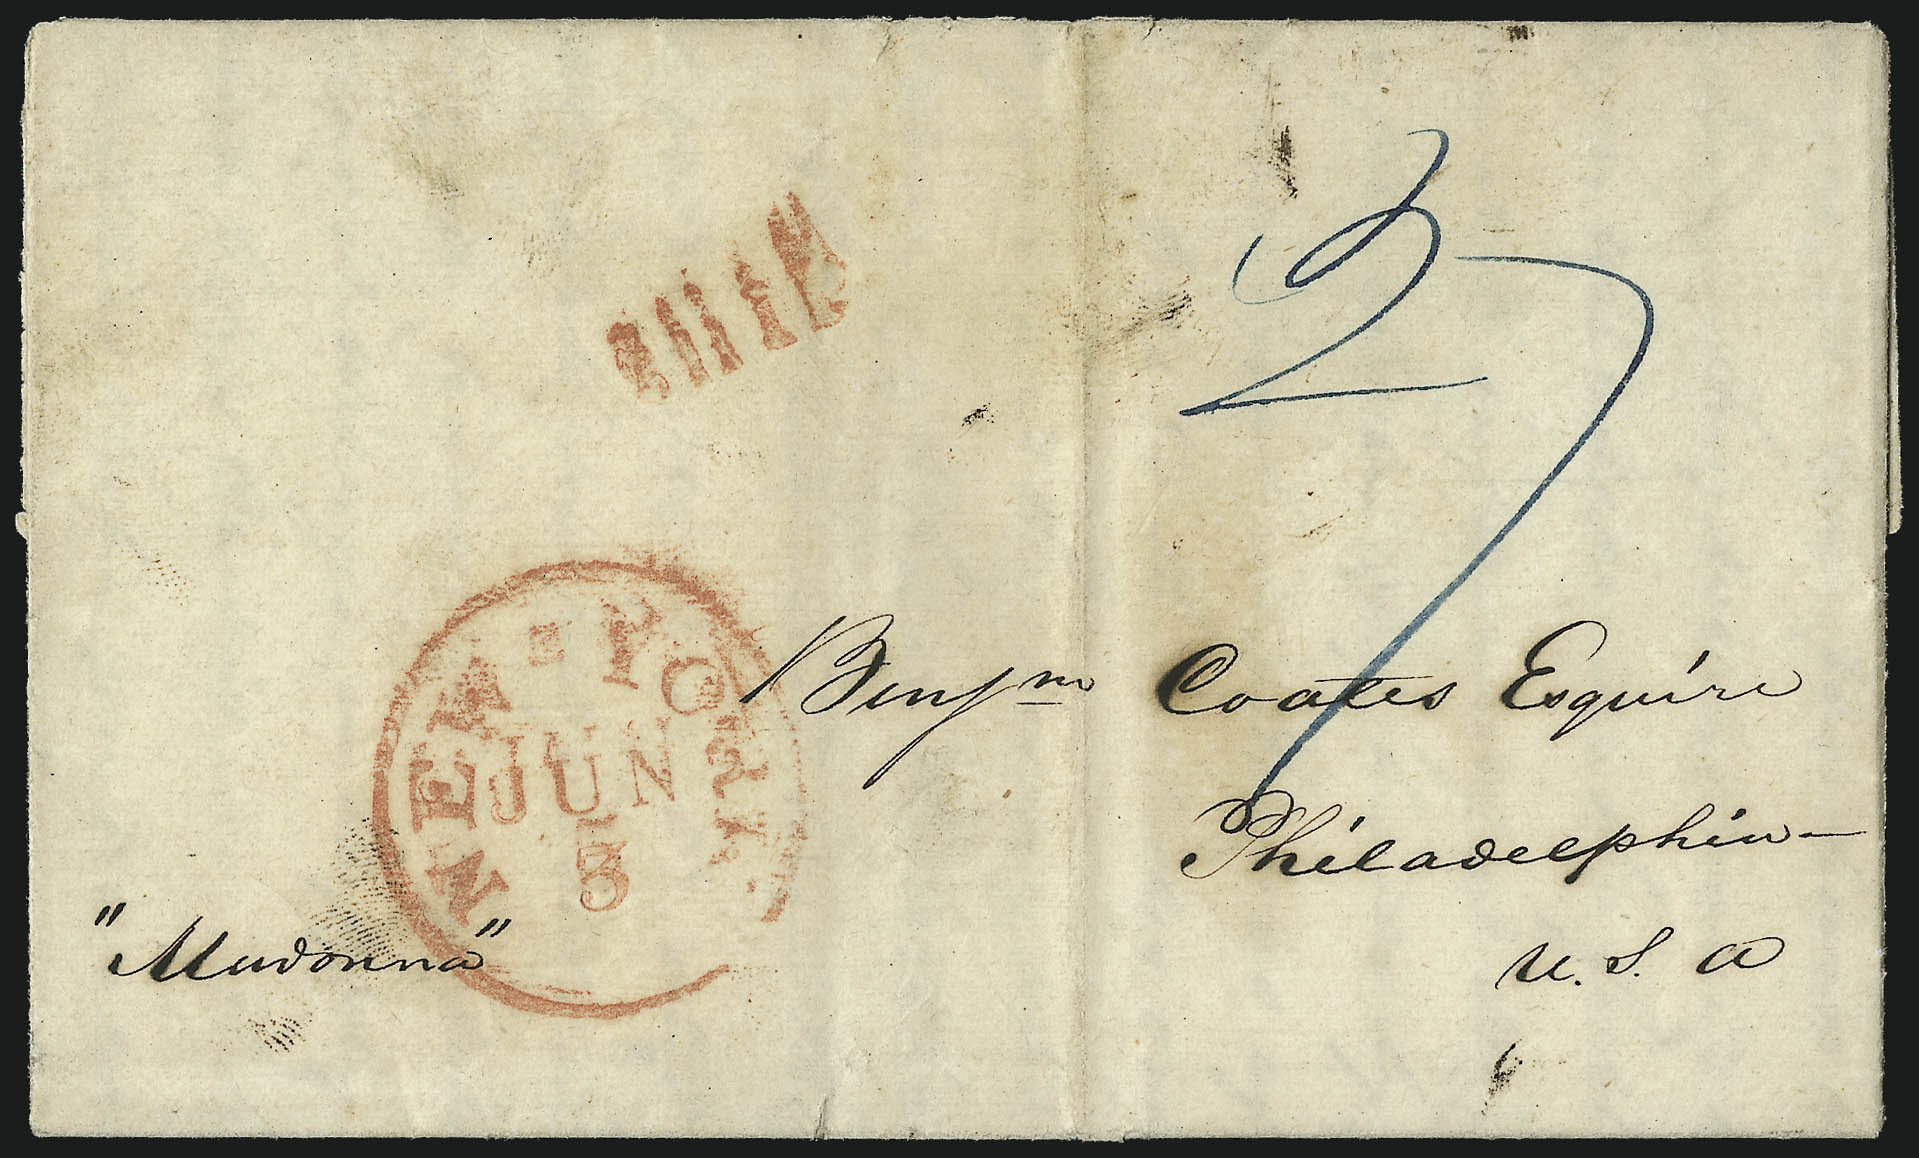 SHIP
27
NEW-YORK
JUN
5
Benjm Coates Esquire
Philadelphia
U.S.A
"Madonna"